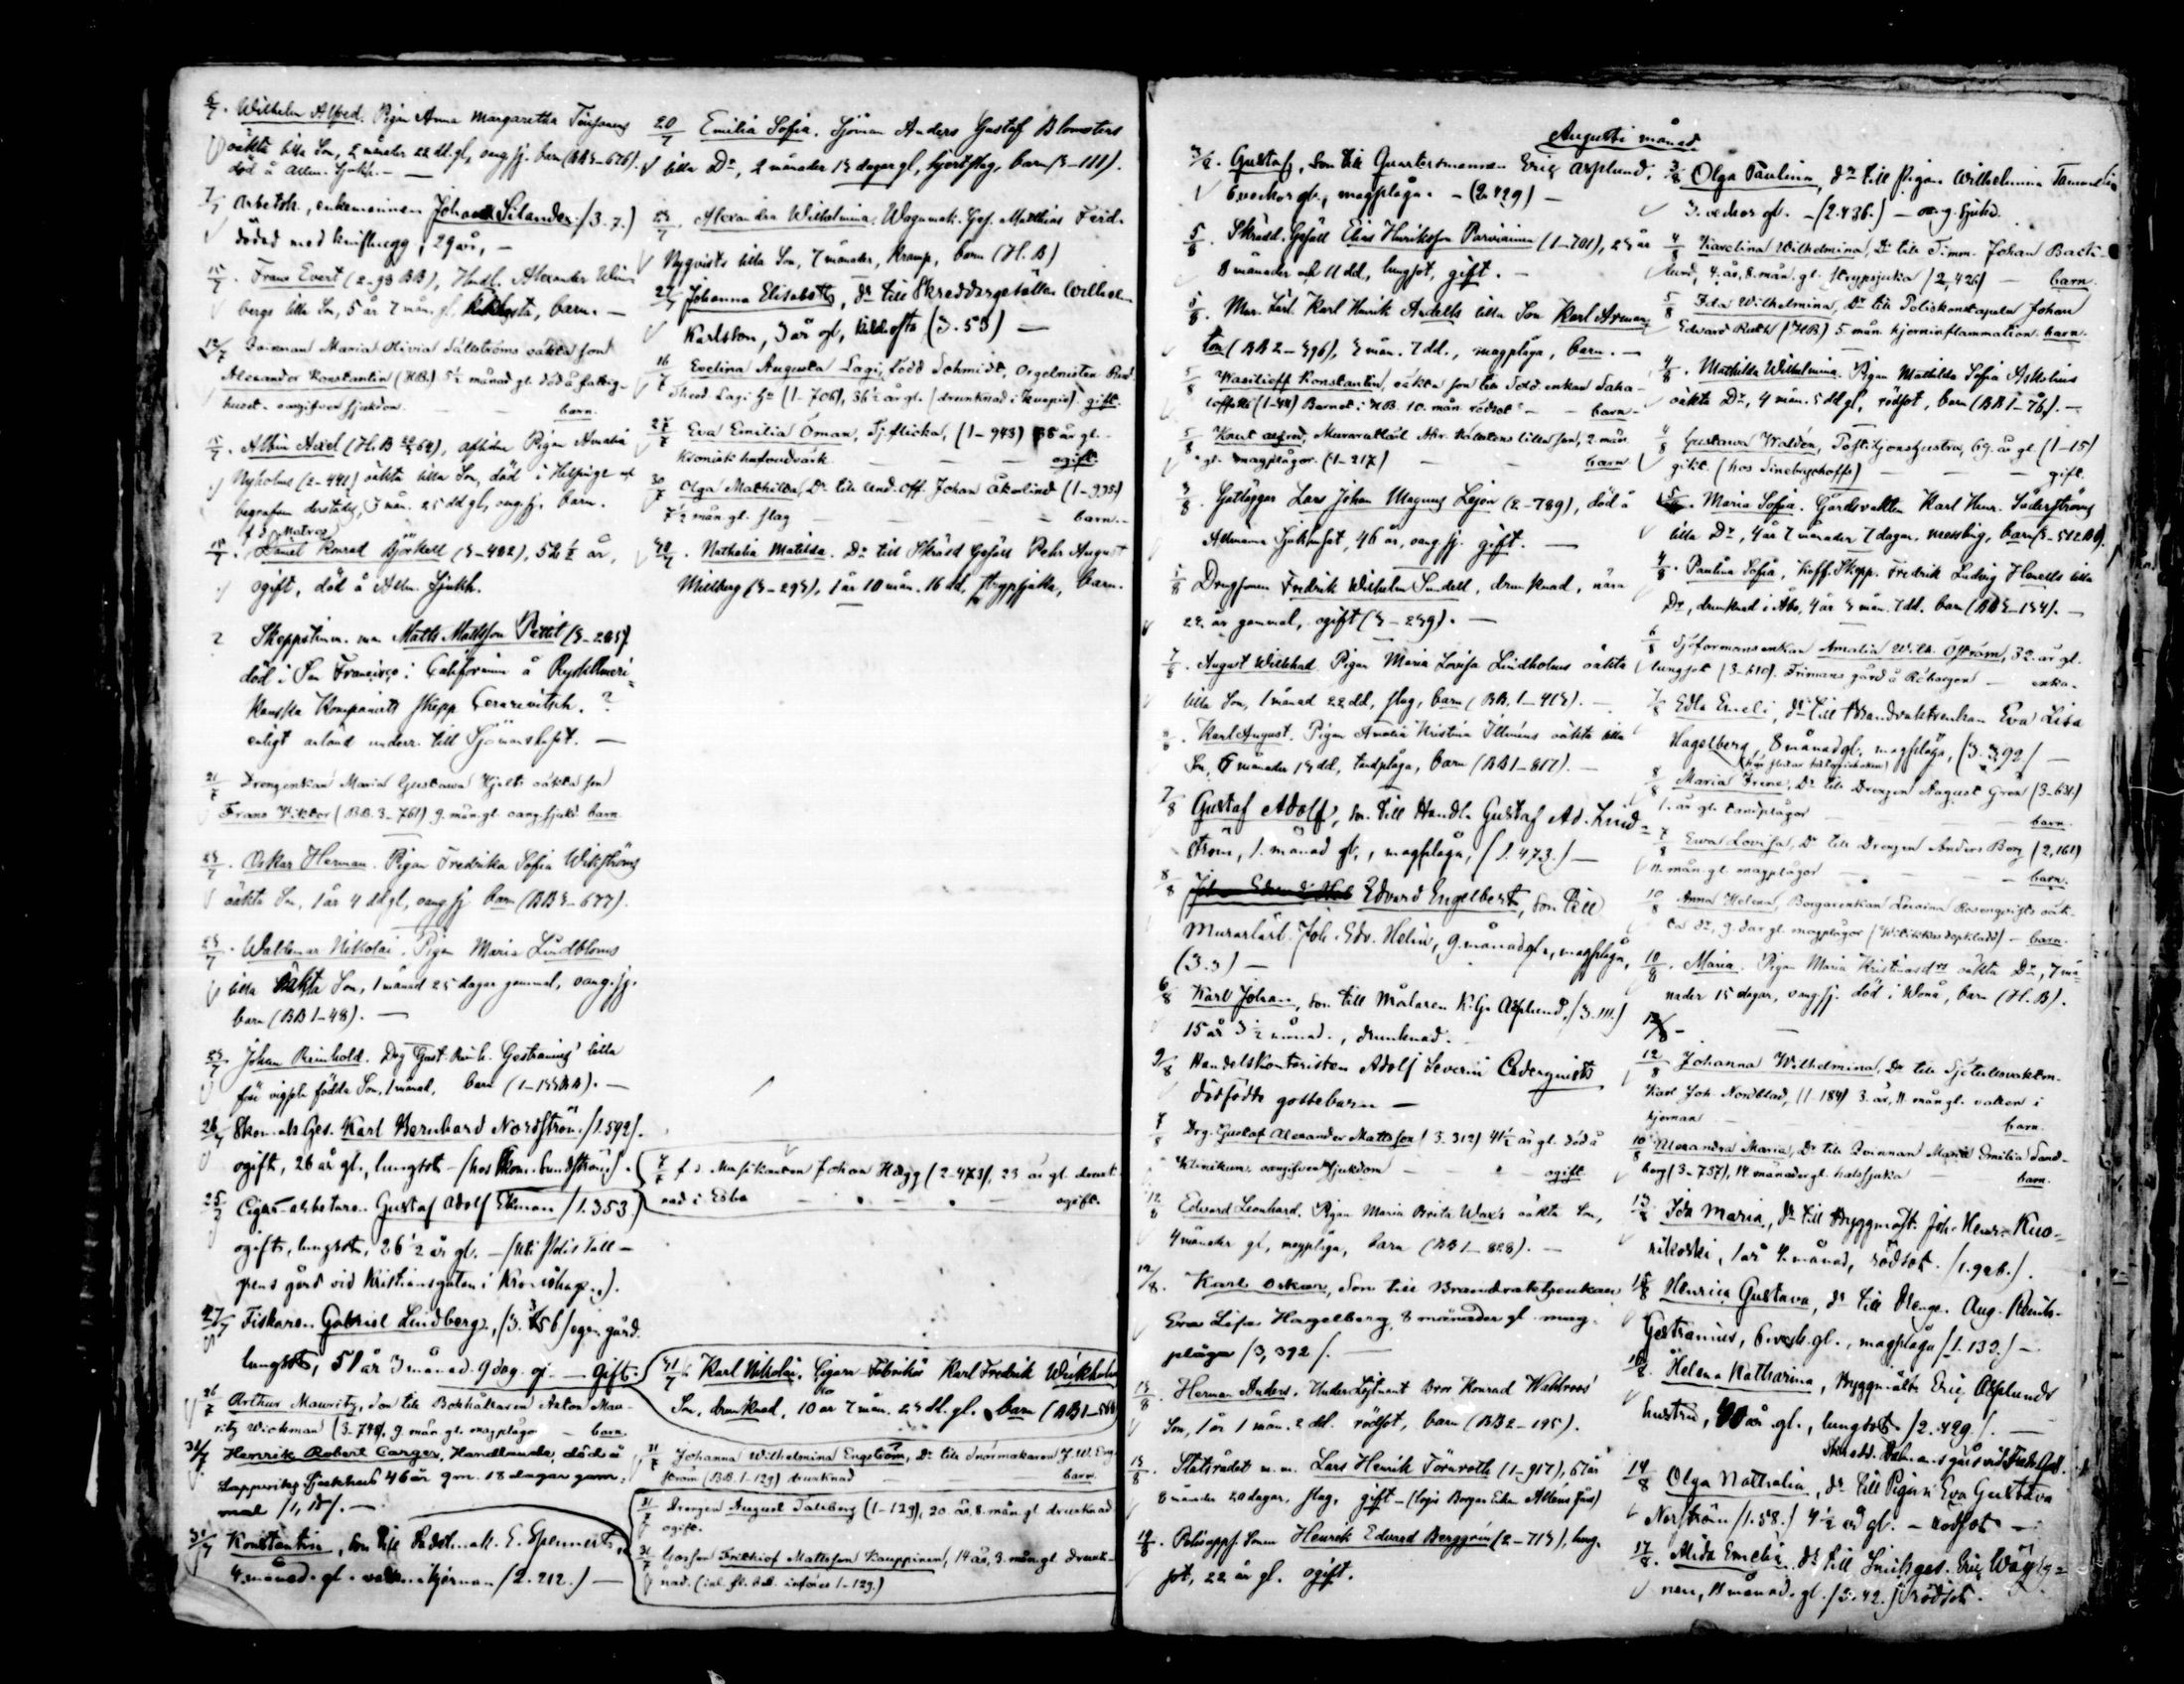 6/7. Wilhelm Alfred. Pigan Anna Margaretha
oäkta lilla Son, 2 månader 22 dd. gl, oang. sj. barn (BB3-676).
död å Allm. Sjukh. —
7/7 Arbetsk., enkemannen Johan Silander (3.7.)
dödad med knifhugg, 29 år, —
15/7. Frans Evert (2-93 BB), Handl. Alexander
bergs lilla Son, 5 år 7 mån. gl, barn. —
12/7 Qvinnan Maria Olivia Sällströms oäkta son
Alexander Konstantin (H.B.) 5½ månad gl. död å fattig-
huset. oangifven sjukdom. — barn.
15/7. Albin Axel (H.B. 64), aflidne Pigan Amalia
Nyholms (2-441) oäkta lilla Son, död i Helsinge och
begrafven derstädes, 3 mån. 25 dd gl, oang. sj. barn.
f d Matros
15/7. Daniel Konrad Björkell (3-482), 52½ år,
ogift, död å Allm. Sjukh.
? Skeppstimm. man Matts Mattsson Pettil (3-205)
död i San Francisco i Californien å Ryskt Ameri-
kanska Kompaniets skepp Cesarewitsch. ?
enligt anländ underr. till Sjömanshuset. —
21/7 Drengenkan Maria Gustava Hjelts oäkta son
Frans Viktor (BB. 3-761) 9. mån. gl. oang. sjukd. barn.
23/7. Oskar Herman. Pigan Fredrika Sofia Wikströms
oäkta Son, 1 år 4 dd gl, oang sj barn (BB3-677).
23/7. Waldemar Nikolai. Pigan Maria Lindbloms
lilla oäkta Son, 1 månad 25 dagar gammal, oang. sj.
barn (BB1-48). —
23/7. Johan Reinhold. Drg Gust. Reinh. Gestranius' lilla
före vigseln födda Son, 1 månad, barn (1-133BB). —
26/7 Skom. Ges. Karl Bernhard Nordström (1.592).
ogift, 26 år gl., lungsot — (hos Skom. Sundström).
25/7 Cigarr-arbetaren Gustaf Adolf Ekman (1.353)
ogift, lungsot, 26½ år gl. — (uti Polis Tall-
grens gård vid Kristiansgatan i Kronohagen).
27/7 Fiskaren Gabriel Lindberg, (3. 156) egen gård.
lungsot, 51 år 3 månad. 9 dag. gl. — Gift.
26/7 Arthur Mauritz, son till Bokhållaren Anton Mau-
ritz Wickman (3-740), 9. mån gl. magplågor — barn.
31/7. Henrik Robert Carger, Handlande, död å
Lappviks Sjukhus 46 år 9 m. 18 dagar gam-
mal
31/7 Konstantin, son till E. Spennert,
4. månad. gl. vatten i hjernan (2.212.) —
20/7 Emilia Sofia. Sjöman Anders Gustaf Blomsters
lilla Dr, 2 månader 13 dagar gl, hjertslag, barn (3-111).
23/7. Alexandra Wilhelmina. Wagnmak. Ges. Matthias Ferd.
Nyqvists lilla Son, 7 månader, kramp, barn (H. B)
27/7 Johanna Elisabeth, Dr till Skreddargesällen Wilhelm
Karlston, 3 år gl, kikhosta (3.53) —
16/7 Evelina Augusta Lagi, född Schmidt, Organisten
Theod. Lagi Hu (1-706), 36½ år gl. (drunknad i Kuopio). gift.
27/7 Eva Emilia Öman, Tj. flicka, (1-943) 35 år gl.
Kronisk hufvudvärk — ogift.
30/7 Olga Mathilda, Dr till Und. off. Johan Åkerlind (1-935)
7½ mån. gl. slag — barn. —
30/7. Nathalia Matilda. Dr till Skrädd Gesäll Pehr August
Mielberg (3-293), 1 år 10 mån. 16 dd, strypsjuka, barn.
7/7 f. d. Musikanten Johan Hägg (2-473), 23 år gl. drunk-
nad i Esbo — ogift.
31/7. Karl Nikolai. Cigarr-Fabrikör Karl Fredrik Wickholm
Son, drunknad, 10 år 7 mån. 23 dd. gl. barn (BB1-568)
31/7 Johanna Wilhelmina Engström, Dr till Snörmakaren J. W. Eng-
ström (BB. 1-129) drunknad — barn.
31/7 Drengen August Salsberg (1-129), 20 år, 8. mån. gl drunknad
ogift.
31/7 Gossen Frithiof Mattsson Kauppinen, 14 år, 3. mån gl. drunk-
nad.
Augusti månad
3/8. Gustaf, son till Quartersmannen Eric Asplund,
6 veckor gl., magplåga. — (2.429) —
5/8. Skrädd. Gesäll Elias Henriksson Parviainen (1-701), 23 år
8 månader och 11 dd, lungsot, gift. —
5/8. Mur. Lärl. Karl Henrik Andells lilla Son Karl Arman-
ton (BB2-396), 3 mån. 7 dd., magplåga, barn. —
5/8 Wasilieff Konstantin, oäkta son till Sold enkan Saha-
roffski (1-44) Barnet i HB. 10. mån rödsot — barn.
5/8 Knut Alfred, Murarelärl. lilla son, 2. mån
gl. magplågor. (1-217) — barn.
3/8. Gatläggar Lars Johan Magnus Lejon (2-789), död å
Allmänna Sjukhuset, 46 år, oang. sj. gift. —
1/8 Drogsonen Fredrik Wilhelm Sundell, drunknad, nära
22. år gammal, ogift (3-239). —
7/8. August Willehad. Pigan Maria Lovisa Lindholms oäkta
lilla Son, 1 månad 22 dd, slag, barn (BB. 1-413). —
8/8. Karl August. Pigan Amalia Kristina Illméns oäkta lilla
Son, 5 månader 13 dd, tandplåga, barn (BB1-817). —
7/8 Gustaf Adolf, son till Handl. Gustaf Ad. Lind-
ström, 1. månad gl., magplåga, (1.473.) —
8/8 Edvard Engelbert, son till
Murarlärl. Joh. Edv. Helin, 9. månad gl., magplåga,
(3.3) —
6/8 Karl Johan, son till Målaren K. Gr. Asplund, (3.111.)
15 år 3½ månad., drunknad.
9/8 Handelskontoristen Adolf Severin Cederquists
dödfödt gossebarn —
7/8 Drg. Gustaf Alexander Mattsson (3-312) 41½ år gl. död å
Klinikum. oangifven sjukdom — ogift
12/8 Edvard Leonhard. Pigan Maria Brita Wax's oäkta Son,
4 månader gl, magplåga, barn (BB1-828). —
12/8. Karl Oskar, Son till Brandvaktsenkan
Eva Lisa Hagelberg, 8 månader gl mag-
plåga (3,392). —
13/8. Herman Anders. Under Löjtnant Bror Konrad Wahlroos'
Son, 1 år 1 mån. 2 dd. rödsot, barn (BB2-195).
13/8. Statsrådet m. m. Lars Henrik Törnroth (1-917), 67 år
8 månader 20 dagar, slag, gift —
12/8. Polisupps. Sonen Henrik Edvard Berggrén (2-713), lung-
sot, 22 år gl. ogift.
3/8 Olga Paulina, Dr till Pigan Wilhelmina
3. veckor gl. — (2.436.) — oang. sjukd.
4/8 Karolina Wilhelmina, Dr till Timm. Johan Back-
lund, 4. år, 8. mån. gl. strypsjuka (2,426) — barn.
5/8 Ida Wilhelmina, Dr till Poliskonstapeln Johan
Edvard Rukh (HB) 5 mån. hjerninflammation. barn.
4/8. Mathilda Wilhelmina. Pigan Mathilda Sofia Askolins
oäkta Dr, 4 mån. 5 dd gl, rödsot, barn (BB1-76). —
4/8 Gustava Waldén, Postiljonshustru, 69. år gl. (1-15)
gikt. (hos Sinebrychoffs) — gift.
5/8. Maria Sofia. Gårdsvakten Karl Henr. Söderströms
lilla Dr, 4 år 7 månader 7 dagar, messling, barn (3-512BB).
4/8. Paulina Sofia, Koff. Skepp. Fredrik Ludvig Henells lilla
Dr, drunknad i Åbo, 4 år 3 mån. 7 dd. barn (BB3-134). —
6/8 Sjöformansenkan Amalia Wilh. Öström, 32. år gl.
lungsot (3-410). Frimans gård å Rödbergen — enka.
7/8 Edla Emeli, Dr till Brandvaktsenkan Eva Lisa
Hagelberg, 8 månad gl., magplåga, (3.392) —
8/8 Maria Irene, Dr till Drengen August Grén (3-631)
1. år gl. tandplågor — barn.
7/8 Ewa Lovisa, Dr till Drengen Anders Berg (2,161)
11. mån. gl. magplågor — barn.
10/8 Anna Helena, Borgarenkan Lovisa Rosenqvists oäk-
ta Dr, 9. dar gl. magplågor — barn.
10/8. Maria. Pigan Maria Kristinasdrs oäkta Dr, 7 må-
nader 15 dagar, oang. sj. död i barn (H. B).
12/8 —
12/8 Johanna Wilhelmina, Dr till
Karl Joh. Nordblad, (1-184) 3. år, 11. mån gl. vatten i
hjernan — barn.
10/8 Alexandra Maria, Dr till Qvinnan Maria Emilia Sand-
berg (3-757), 14 månader gl. halssjuka — barn.
13/8 Ida Maria, Dr till Byggmäst. Joh. Henr. Kuo-
rikoski, 1 år 4. månad, rödsot. (1.926.).
15/8 Henrica Gustava, Dr till Drengen Aug. Reinh.
Gestranius, 6. veck. gl., magplåga (1.133.) —
16/8. Helena Katharina, Byggmäst. Eric Asplunds
hustru, 40 år. gl., lungsot (2.429.). —
14/8 Olga Nathalia, Dr till Pigan Eva Gustava
Norström (1.58.) 4½ år gl. — rödsot —
17/8. Alida Emelia. Dr till Smidsges. Eric Wäyry-
nen, 11 månad. gl. (3.42.) rödsot.